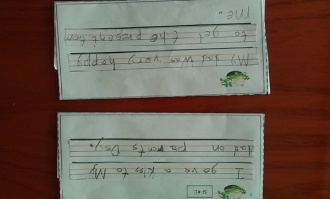 I gave a kiss to My
dad on parents Day.
My dad Was very happy
to get the present from
me.